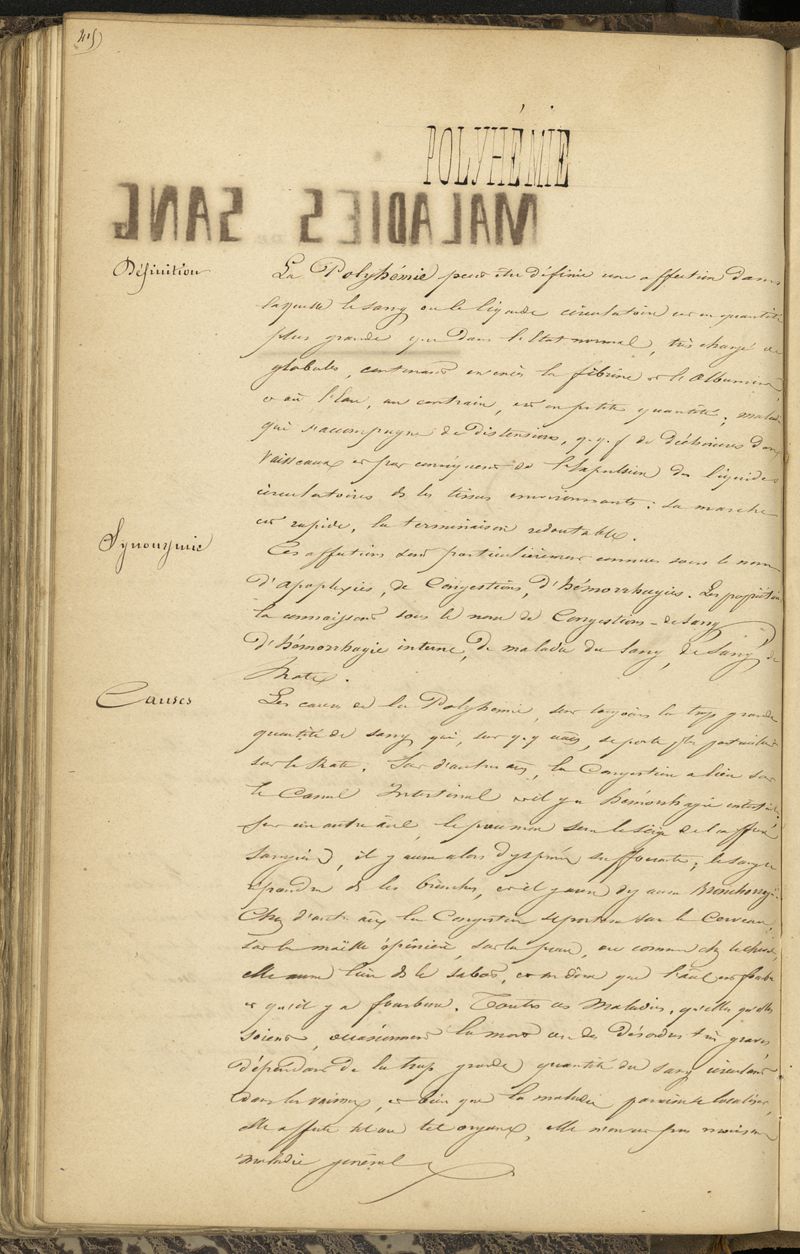 POLYHÉMIE
MALADIES SANG
Définition
La Polyhémie peut être définie une affection dans
laquelle le sang ou le liquide circulatoire est en quantité
plus grande que dans l'état normal, très chargé de
globules, contenant en excès la fibrine et l'Albumine
et où l'Eau, au contraire, est en petite quantité; maladie
qui s'accompagne de distensions, q.q.f de déchirures dans
Vaisseaux et par conséquent de l'expulsion des liquides
circulatoires ds les tissus environnants: sa marche
est rapide, la terminaison redoutable.
Synonymie
Ces affections sont particulièrement connues sous le nom
d'apoplexies, de Congestions, d'hémorrhagies. Les propriétaires
la connaissent sous le nom de Congestions de Sang
d'hémorrhagie interne, de maladie du Sang, de Sang de
Rate.
Causes
Les causes de la Polyhémie, sont toujours la trop grande
quantité de sang qui, sur q.q uns, se porte plus particulièrement
sur la Rate. Sur d'autres, la Congestion a lieu sur
le Canal Intestinal et il y a hémorrhagie intestinale
sur un autre, le poumon sera le siège de l'
, il y aura alors dyspnée suffocante; le sang se
répandra ds les bronches, et il y aura Bronchorrhagie.
Chez d'autres la Congestion se portera sur le Cerveau,
sur la moëlle épinière, sur la peau, ou comme chez le cheval
elle aura lieu ds le sabot, et on dira que l'animal est fourbu
et qu'il y a fourbure. Toutes ces Maladies, qu'elles qu'elles
soient, occasionnent la mort ou des désordres très graves
dépendant de la trop grande quantité du sang circulant
dans les vaisseaux, et bien que la maladie paraisse localisée,
elle affecte tel ou tel organe, elle n'en est pas moins une
maladie général